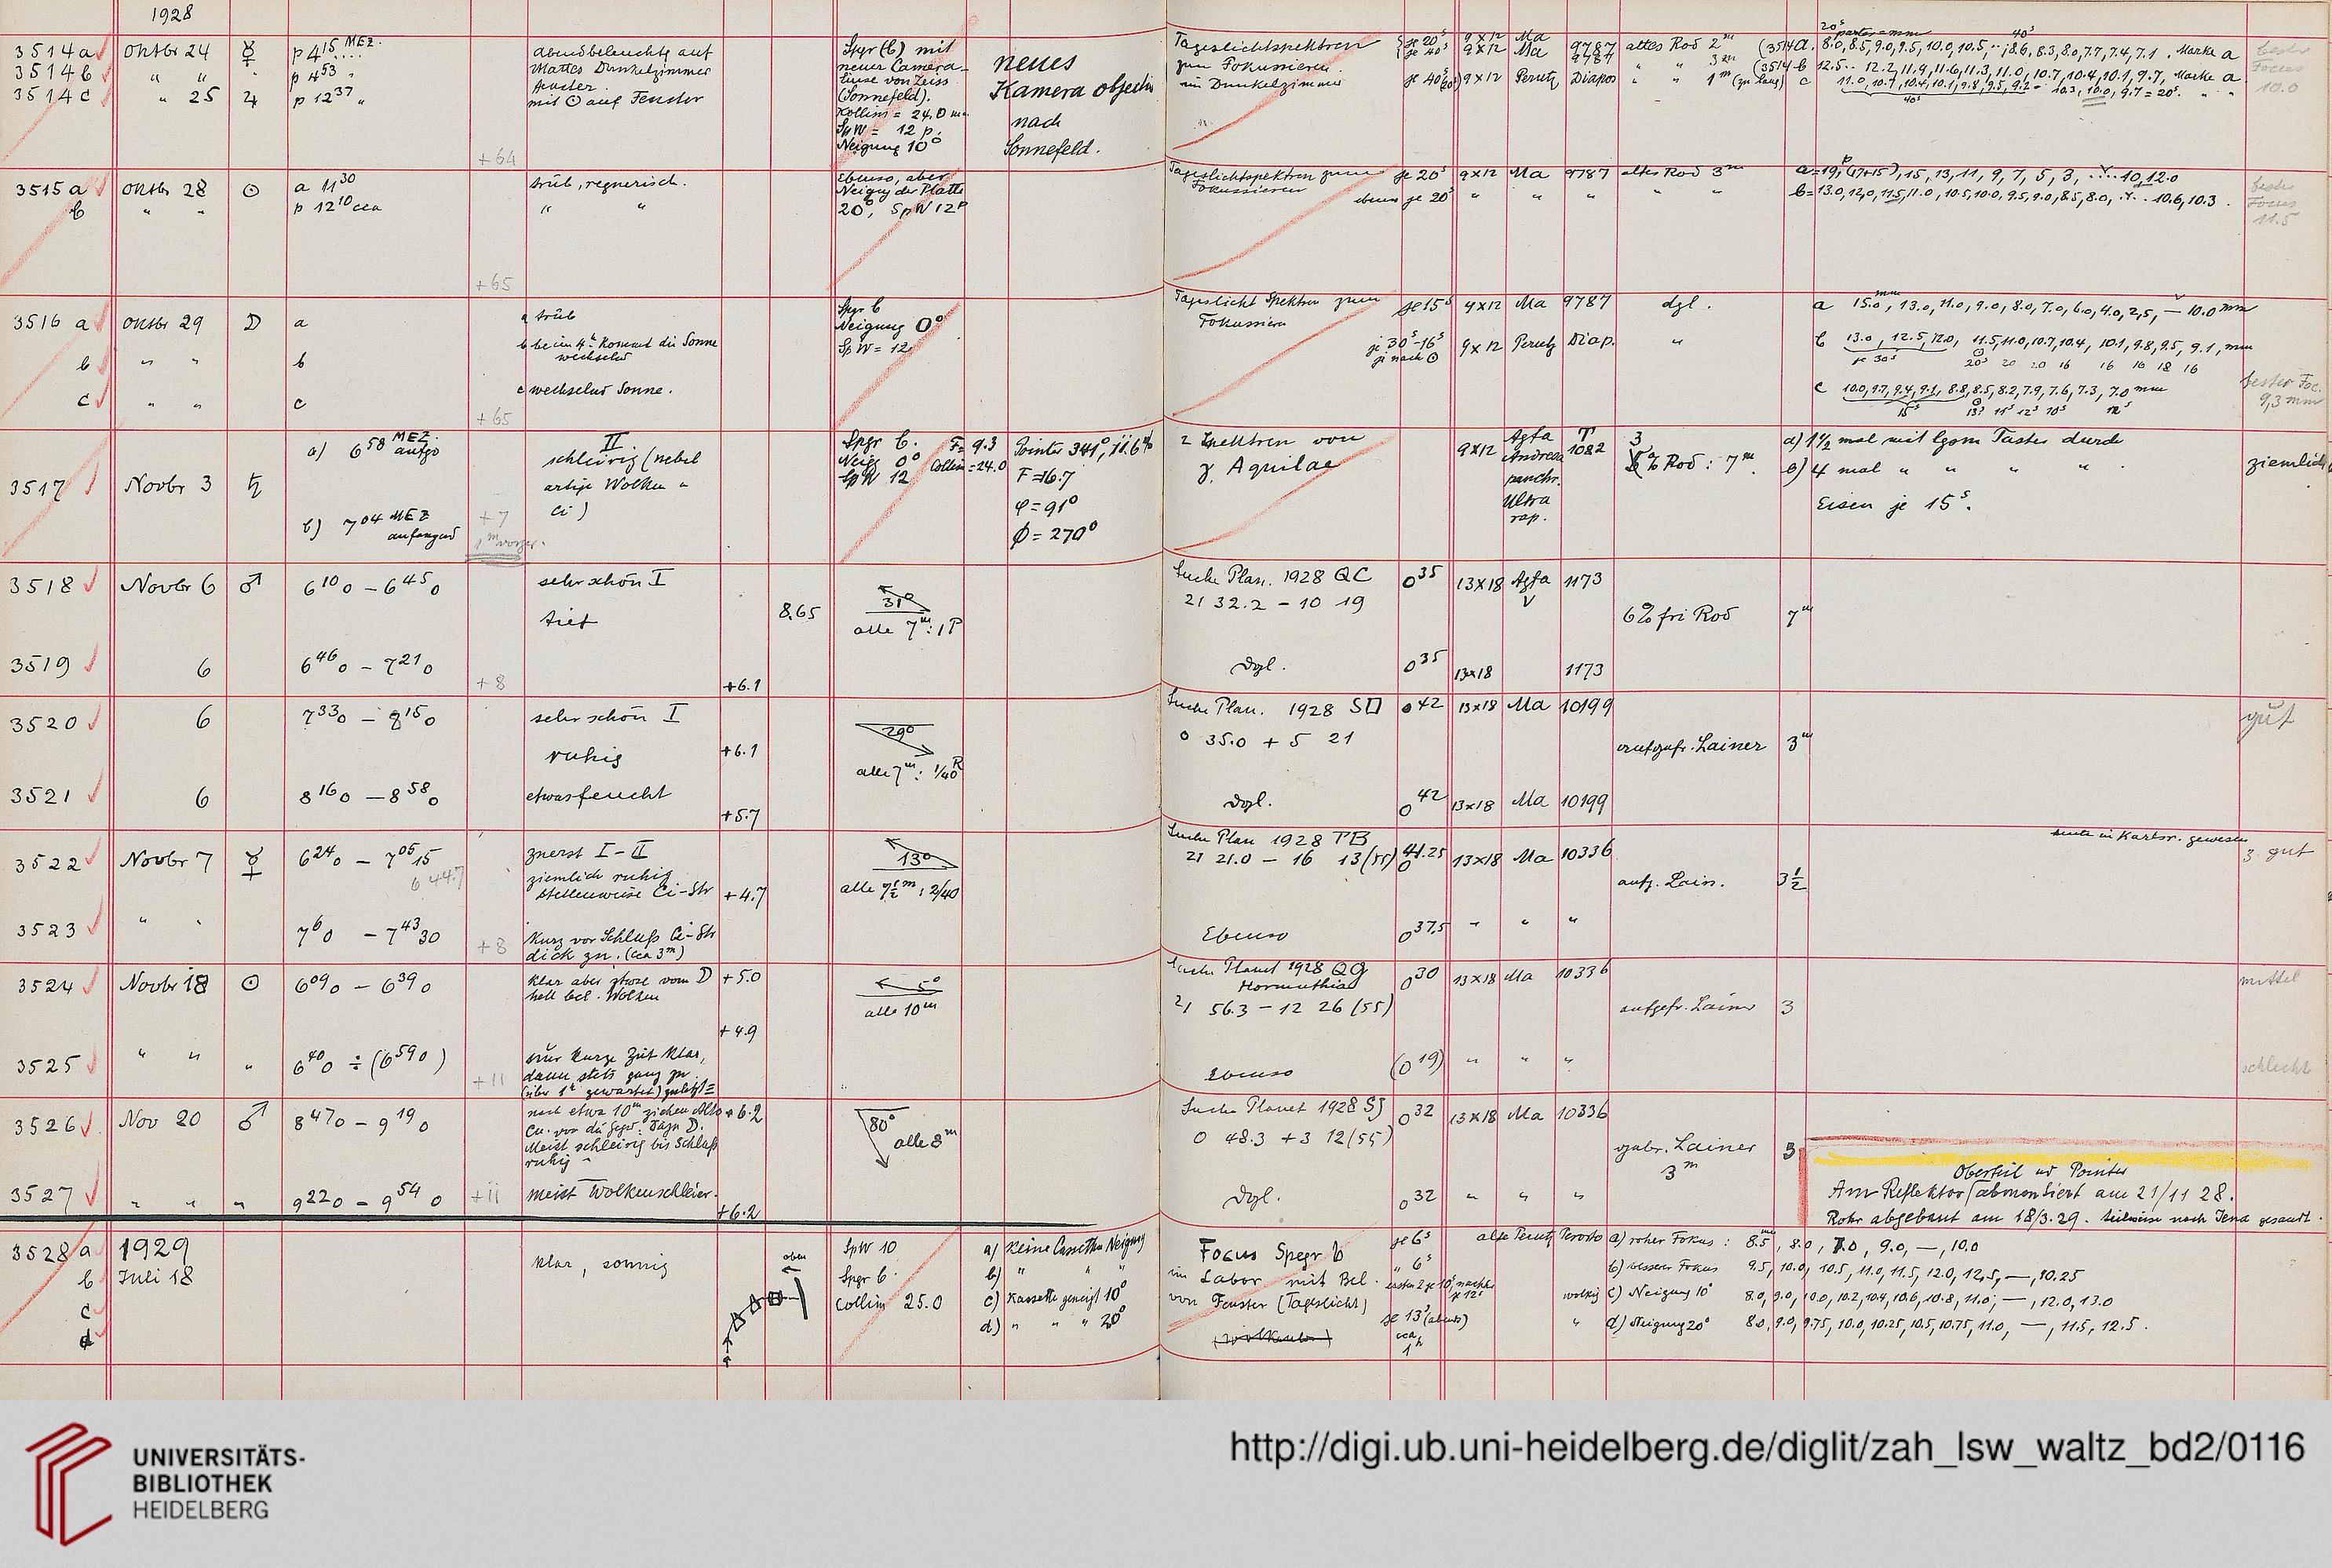 1928
3514a Oktbr 24 ☿ p 4 15 MEZ. Abendbeleuchtg auf Spgr (b) mit neues Tageslichtspektren je 20s 9x12 Ma altes Rod 2m (3514a. 8.0, 8.5, 9.0, 9.5, 10.0, 10.5, Marke a
3514b " " p 4 53 " Mattes Dunkelzimmer neuer Camera- Kamera objectiv zum Fokussieren je 40s 9x12 Ma 9787 " " 3m (3514b 12.5 .. 12.2, 11.9, 11.6, 11.3, 11.0, 10.7, 10.4, 10.1, 9.7, Marke a
3514c " 25 ♃ p 12 37 " Fenster. linse von Zeiss nach im Dunkelzimmer 9x12 Perutz Diapos " " 1m (zu lang) c 11.0, 10.7, 10.4, 10.1, 9.8, 9.5, 9.2
mit ⊙ auf Fenster (Sonnefeld). Sonnefeld. 10.3, 10.0, 9.7 = 20s. " "
Kollim = 24.0 mm bester Focus 10.0
SpW = 12 p.
+64 Neigung 10°
3515 a Oktbr 28 ⊙ a 11 30 trüb, regnerisch. Ebenso, aber Tageslichtspektren zum je 20s 9x12 Ma 9787 altes Rod 3m 15, 13, 11, 9, 7, 5, 3, 10,12.0
b " " p 12 10 cca " " Neigung der Platte Fokussieren bester Focus 11.5
20°, SpW 12p ebenso je 20s " " " " b=13.0, 12.0, 11.5, 11.0, 10.5, 10.0, 9.5, 9.0, 8.5, 8.0, 10.6, 10.3.
+65
3516 a Oktbr 29 D a a trüb Spgr b Tageslicht Spektren zum je 15s 9x12 Ma 9787 dgl. a 15.0, 13.0, 11.0, 9.0, 8.0, 7.0, 6.0, 4.0, 2.5, — 10.0 mm
Neigung 0° Fokussieren
b " " b b beim 4t. kommt die Sonne SpW = 12 je 30s-16s 9x12 Perutz Diap. " b 13.0, 12.5, 12.0, 11.5, 11.0, 10.7, 10.4, 10.1, 9.8, 9.5, 9.1, mm
wechselnd je nach ⊙ je 30s 20s 20 20 16 16 16 18 16
c " " c c wechselnd Sonne. c 10.0, 9.7, 9.4, 9.1, 8.8, 8.5, 8.2, 7.9, 7.6, 7.3, 7.0 mm bester Foc.
+65 15s 13s 11s 12s 10s 12s 9,3 mm
a) 6 58 MEZ. aufgd II Spgr. b. F= 9.3 Pointer 341°, 11.6 2 Spektren von 9x12 Agfa 1082 3 a) 1½ mal mit lgsm Taster durch
3517 Novbr 3 ♄ schleirig (nebel Neigg 0° Collim=24.0 F=16.7 γ Aquilae Andresa % Rod: 7m. b) 4 mal " " " " ziemlich
artige Wolken u SpW 12 φ=91° panchr.
b) 7 04 MEZ anfangend +7 Ci) ϕ=270° Ultra rap. Eisen je 15s.
3518 Novbr 6 ♂ 6 10 0 – 6 45 0 sehr schön I 31° Suche Plan. 1928 QC 0 35 13x18 Agfa 1173
tief 8.65 alle 7m: 1P 21 32.2 – 10 19 6% fri Rod 7m
3519 6 6 46 0 – 7 21 0 +8 +6.1 Dgl. 0 35 13x18 1173
3520 6 7 33 0 – 8 15 0 sehr schön I 29° Suche Plan. 1928 SD 0 42 13x18 Ma 10199 gut
ruhig +6.1 alle 7m: 1/40R 0 35.0 + 5 21 aufgefr. Lainer 3m
3521 6 8 16 0 – 8 58 0 etwas feucht +5.7 Dgl. 0 42 13x18 Ma 10199
3522 Novbr 7 ☿ 6 24 0 – 7 05 15 zuerst I–II 13° Suche Plan 1928 TB 0 41.25 13x18 Ma 10336 heute in Karlsr. gewesen
6 44.7 ziemlich ruhig 21 21.0 – 16 13 (55) z. gut
stellenweise Ci-Str +4.7 alle 7½m: 2/40 aufg. Lain. 3½
3523 " " 7 6 0 – 7 43 30 +8 Kurz vor Schluß Ci-Str Ebenso 0 37,5 " " "
dick zu. (cca 3m)
3524 Novbr 18 ⊙ 6 09 0 – 6 39 0 klar aber stark vom D +5.0 5° Suche Planet 1928 QG 0 30 13x18 Ma 10336 mittel
hell bel. Wolken alle 10m Hormuthia
+4.9 21 56.3 – 12 26 (55) aufgefr. Lainer 3
3525 " " " 6 40 0 ÷ (6 59 0) nur kurze Zeit klar, Ebenso (0 19) " " " schlecht
+11 dann stets ganz zu
(über 1h gewartet)
3526 Nov 20 ♂ 8 47 0 – 9 19 0 nach etwa 10m ziehen Alto +6.2 80° Suche Planet 1928 SJ 0 32 13x18 Ma 10336
Cu. vor D. alle 8m 0 48.3 +3 12 (55)
Meist schleirig bis Schluß gebr. Lainer 3m 3
ruhig
Oberteil und Pointer
3527 " " " 9 22 0 – 9 54 0 +11 meist Wolkenschleier. +6.2 Dgl. 0 32 " " " Am Reflektor abmontiert am 21/11 28.
Rohr abgebaut am 18/3.29. teilweise nach Jena gesandt.
3528 a 1929 klar, sonnig oben SpW 10 a) keine Cassetten Neigung Focus Spegr b je 6s alte Perutz Perorto a) roher Fokus: 8.5, 8.0, 7.0, 9.0, —, 10.0
b Juli 18 Spgr b. b) " " " im Labor mit Bel. " 6s b) besserer Fokus 9.5, 10.0, 10.5, 11.0, 11.5, 12.0, 12.5, —, 10.25
c Collim 25.0 c) Kassette geneigt 10° von Fenster (Tageslicht) wolkig c) Neigung 10° 8.0, 9.0, 10.0, 10.2, 10.4, 10.6, 10.8, 11.0, —, 12.0, 13.0
d d) " " " 20° je 13s (abends) " d) Neigung 20° 8.0, 9.0, 9.75, 10.0, 10.25, 10.5, 10.75, 11.0, —, 11.5, 12.5.
cca 1h
UNIVERSITÄTS-
BIBLIOTHEK
HEIDELBERG
http://digi.ub.uni-heidelberg.de/diglit/zah_lsw_waltz_bd2/0116